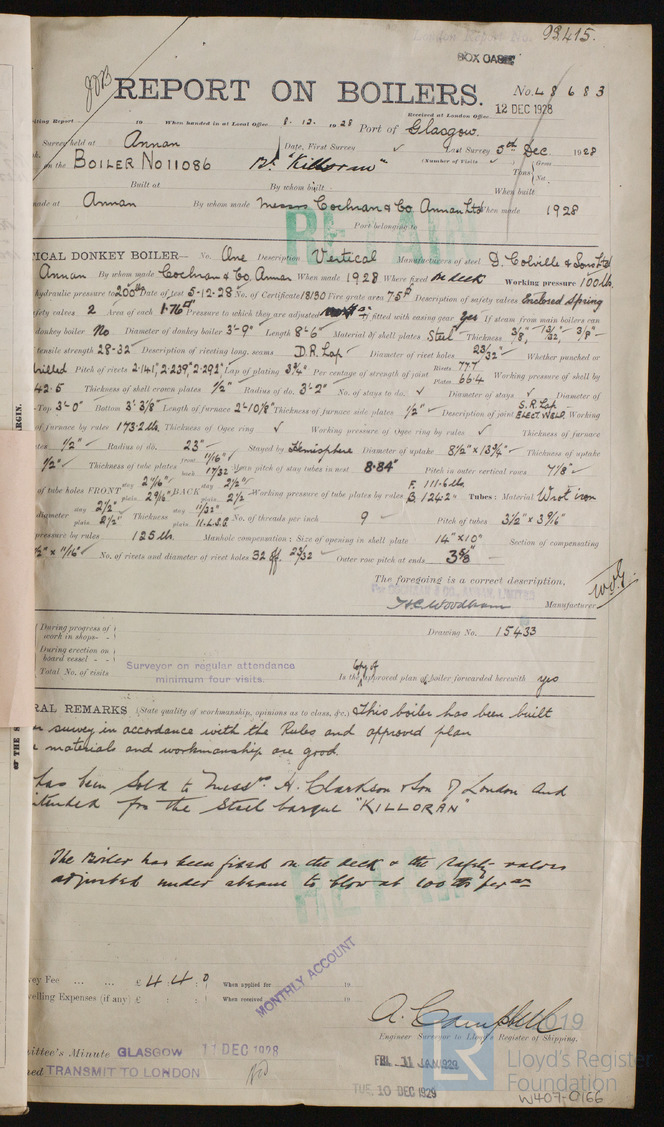 93415.
BOX CASE
REPORT ON BOILERS.
No. 48683
Received at London Office
12 DEC 1928
Writing Report 19 When handed in at Local Office 8.12.1928 Port of Glasgow.
Survey held at Annan Date, First Survey ✓ Last Survey 5th Dec 1928
(Number of Visits ✓) Gross
Tons
on the BOILER No 11086 Bk "Killoran"
Built at By whom built When built
made at Annan By whom made Messrs Cochran & Co Annan Ltd When made 1928
Port belonging to
RETAIN
VERTICAL DONKEY BOILER— No. One Description Vertical Manufacturers of steel D. Colville & Sons Ltd
Annan By whom made Cochran & Co Annan When made 1928 Where fixed On deck Working pressure 100 lb.
hydraulic pressure to 200 lbs Date of test 5-12-28 No. of Certificate 18130 Fire grate area 7.5 Description of safety valves Enclosed Spring
safety valves 2 Area of each 1.76 Pressure to which they are adjusted fitted with easing gear yes If steam from main boilers can
donkey boiler No Diameter of donkey boiler 3'-9" Length 8'-6" Material of shell plates Steel Thickness 3/8", 13/32", 3/8"
tensile strength 28-32 Description of riveting long. seams D.R. Lap Diameter of rivet holes 23/32" Whether punched or
drilled Pitch of rivets 2.141", 2.239", 2.292" Lap of plating 3¾" Per centage of strength of joint Rivets 77.7 Plates 66.4 Working pressure of shell by
142.5 Thickness of shell crown plates ½" Radius of do. 3'-2" No. of stays to do. ✓ Diameter of stays ✓ Diameter of
Top 3'-0" Bottom 3'-3⅜" Length of furnace 2'-10⅞" Thickness of furnace side plates ½" Description of joint S.R. Lap ELECT. WELD. Working
of furnace by rules 173.2 lbs Thickness of Ogee ring ✓ Working pressure of Ogee ring by rules ✓ Thickness of furnace
plates ½" Radius of do. 23" Stayed by Hemisphere Diameter of uptake 8½" x 13¾" Thickness of uptake
½" Thickness of tube plates front 11/16" back 17/32" Mean pitch of stay tubes in nest 8.84" Pitch in outer vertical rows 7⅛"
of tube holes FRONT stay 2 7/16" plate 2 9/16" BACK stay 2½" plate 2½" Working pressure of tube plates by rules F. 111.6 lbs B. 124.2" Tubes: Material Wrot iron
diameter stay 2½" plate 2½" Thickness stay 11/32" plate 11.L.S.G No. of threads per inch 9 Pitch of tubes 3½" x 3 9/16"
pressure by rules 125 lb. Manhole compensation: Size of opening in shell plate 14" x 10" Section of compensating
x 11/16" No. of rivets and diameter of rivet holes 32 off. 23/32" Outer row pitch at ends 3⅝"
The foregoing is a correct description,
For COCHRAN & CO., ANNAN, LIMITED
H.C. Woodburn Manufacturer
During progress of work in shops - -
During erection on board vessel - -
Total No. of visits
Surveyor on regular attendance
minimum four visits.
Drawing No. 15433
Is the Copy of approved plan of boiler forwarded herewith yes
GENERAL REMARKS (State quality of workmanship, opinions as to class, &c.) This boiler has been built
survey in accordance with the Rules and approved plan
materials and workmanship are good.
has been sold to Messrs. H. Clarkson & Son of London and
intended for the Steel barque "KILLORAN"
The Boiler has been fixed on the deck & the safety valves
adjusted under steam to blow at 100 lb per □"
RETAIN
Survey Fee ... ... £ 4 : 4 : 0 When applied for 19
Travelling Expenses (if any) £ : : When received 19
MONTHLY ACCOUNT
A. Campbell
Engineer Surveyor to Lloyd's Register of Shipping.
2019
Committee's Minute GLASGOW 11 DEC 1928
FRI. 11 JAN 1929
Assigned TRANSMIT TO LONDON
TUE. 10 DEC 1929
Lloyd's Register
Foundation
W407-0166